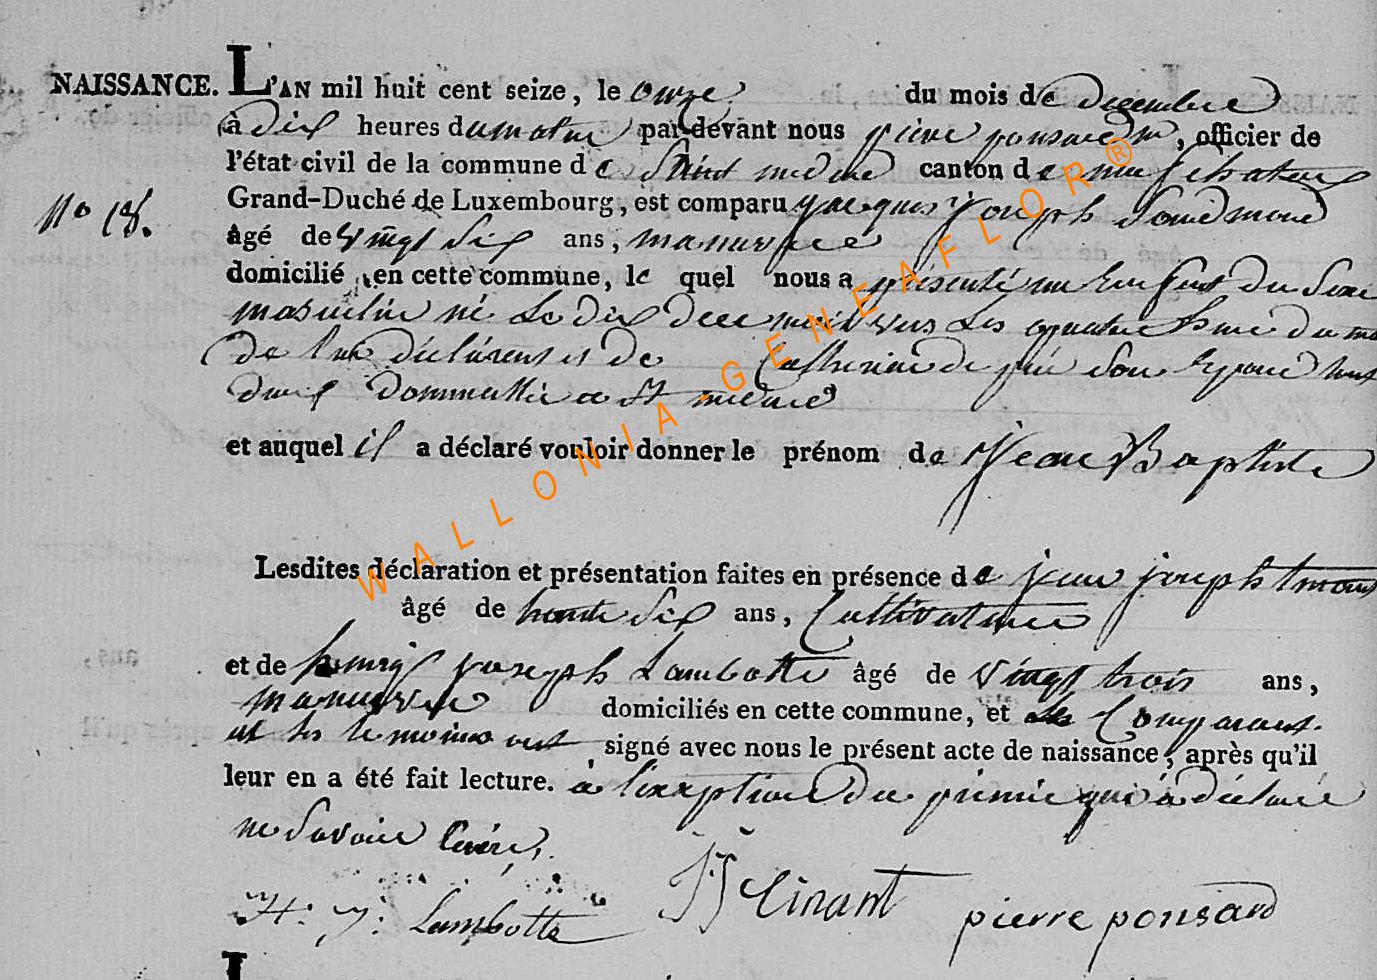 NAISSANCE. L'AN mil huit cent seize, le onze du mois de decembre
à dix heures du matin par-devant nous pierre ponsard, officier de
l'état civil de la commune de Saint medard canton de neufchateau
Nº 18. Grand-Duché de Luxembourg, est comparu jacques joseph
âgé de vingt six ans, manuvre
domicilié en cette commune, le quel nous a présenté un Enfant du Sexe
masculin né Le dix decembre vers Les quatre heure du
de lui déclarent et de Catherine son Epouse tous
deux à St medard
et auquel il a déclaré vouloir donner le prénom de Jean Baptiste
Lesdites déclaration et présentation faites en présence de jean joseph
âgé de trente Six ans, Cultivateur
et de henry joseph Lambotte âgé de vingt trois ans,
manuvre domiciliés en cette commune, et Comparant
et les temoins ont signé avec nous le présent acte de naissance, après qu'il
leur en a été fait lecture. à l'exeption du premie qui à déclaré
ne Savoire
H: J: Lambotte JJ pierre ponsard
WALLONIA-GENEAFLOR®
L